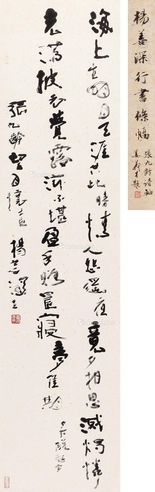 楊善深行書條幅
張九齡詩
海上生明月天涯共此時情人怨遙夜竟夕相思滅燭憐
光滿披衣覺露滋不堪盈手贈還寢夢佳期
夕下脫起字
張九齡望月懷遠
楊善深